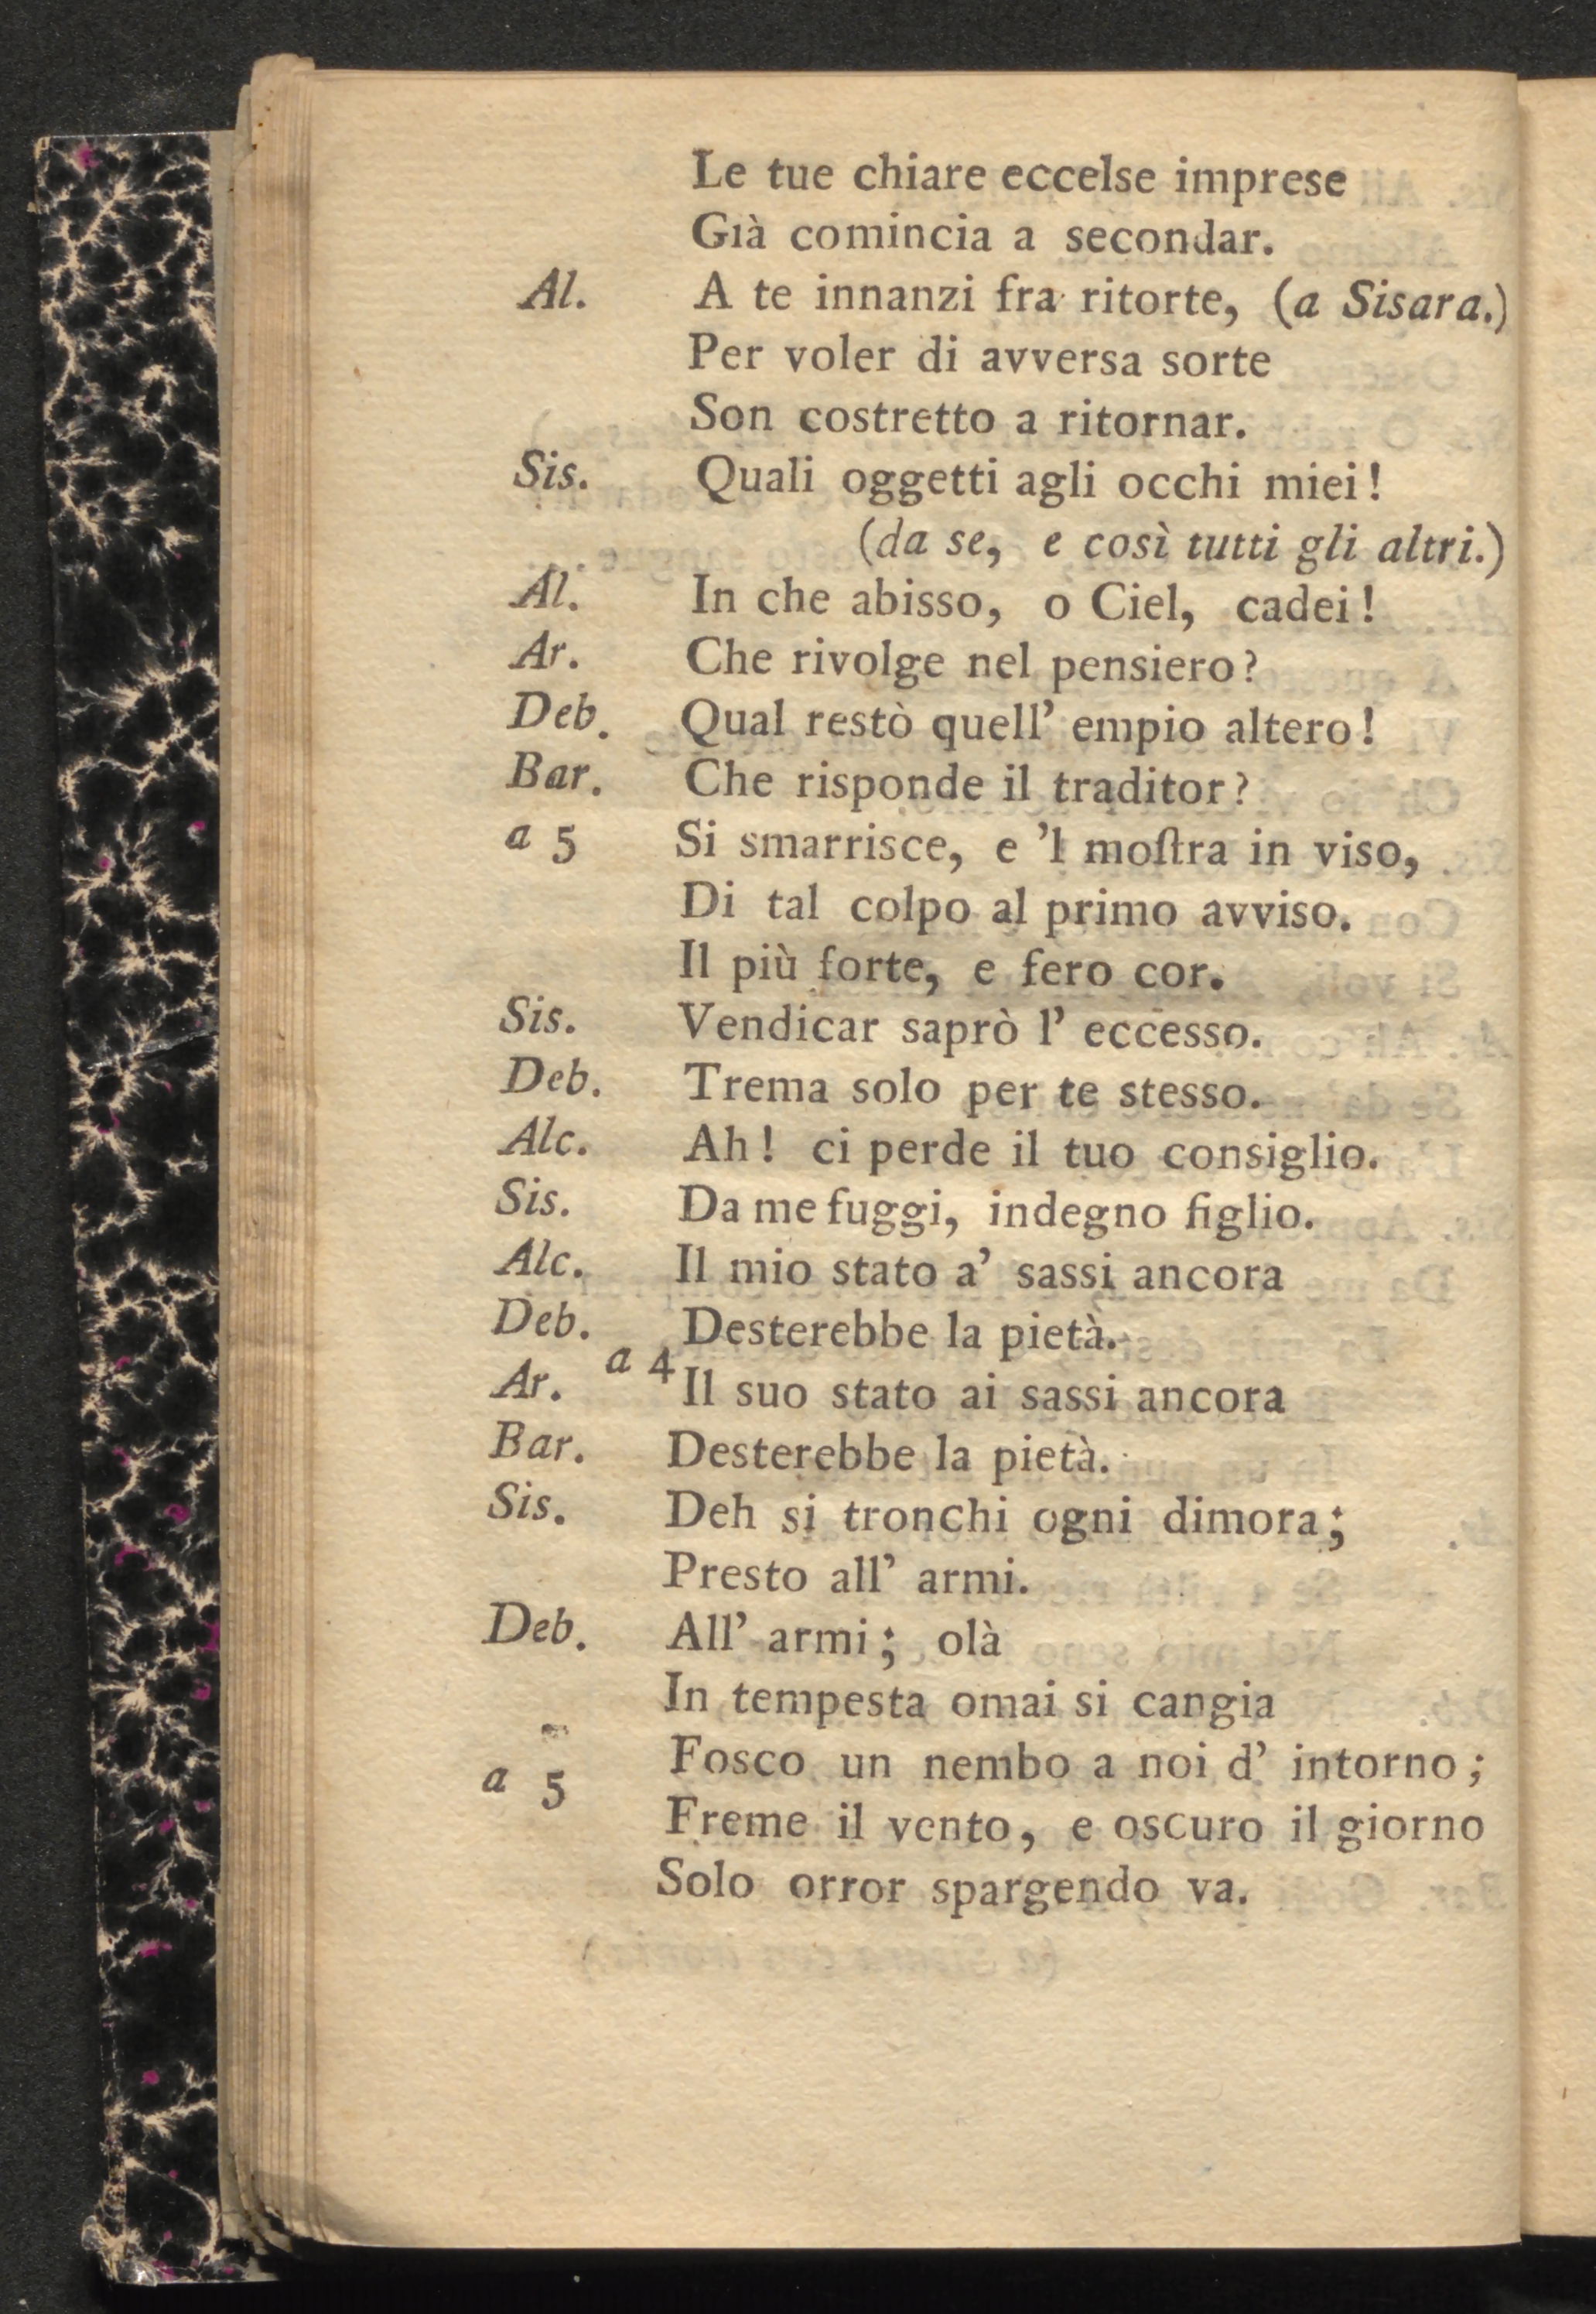 Le tue chiare eccelse imprese
Già comincia a secondar.
Al. A te innanzi fra ritorte, (a Sisara.)
Per voler di avversa sorte
Son costretto a ritornar.
Sis. Quali oggetti agli occhi miei!
(da se, e così tutti gli altri.)
Al. In che abisso, o Ciel, cadei!
Ar. Che rivolge nel pensiero?
Deb. Qual restò quell' empio altero!
Bar. Che risponde il traditor?
a 5 Si smarrisce, e 'l moſtra in viso,
Di tal colpo al primo avviso.
Il più forte, e fero cor.
Sis. Vendicar saprò l' eccesso.
Deb. Trema solo per te stesso.
Alc. Ah! ci perde il tuo consiglio.
Sis. Da me fuggi, indegno figlio.
Alc. Il mio stato a' sassi ancora
Deb. Desterebbe la pietà.
Ar. a 4 Il suo stato ai sassi ancora
Bar. Desterebbe la pietà.
Sis. Deh si tronchi ogni dimora;
Presto all' armi.
Deb. All' armi; olà
In tempesta omai si cangia
a 5 Fosco un nembo a noi d' intorno;
Freme il vento, e oscuro il giorno
Solo orror spargendo va.